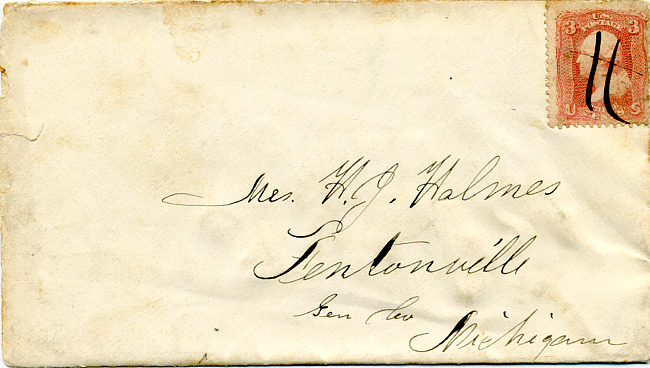 3 U.S. POSTAGE 3
U S
Mrs. H. J. Holmes
Fentonville
Gen Co
Michigan